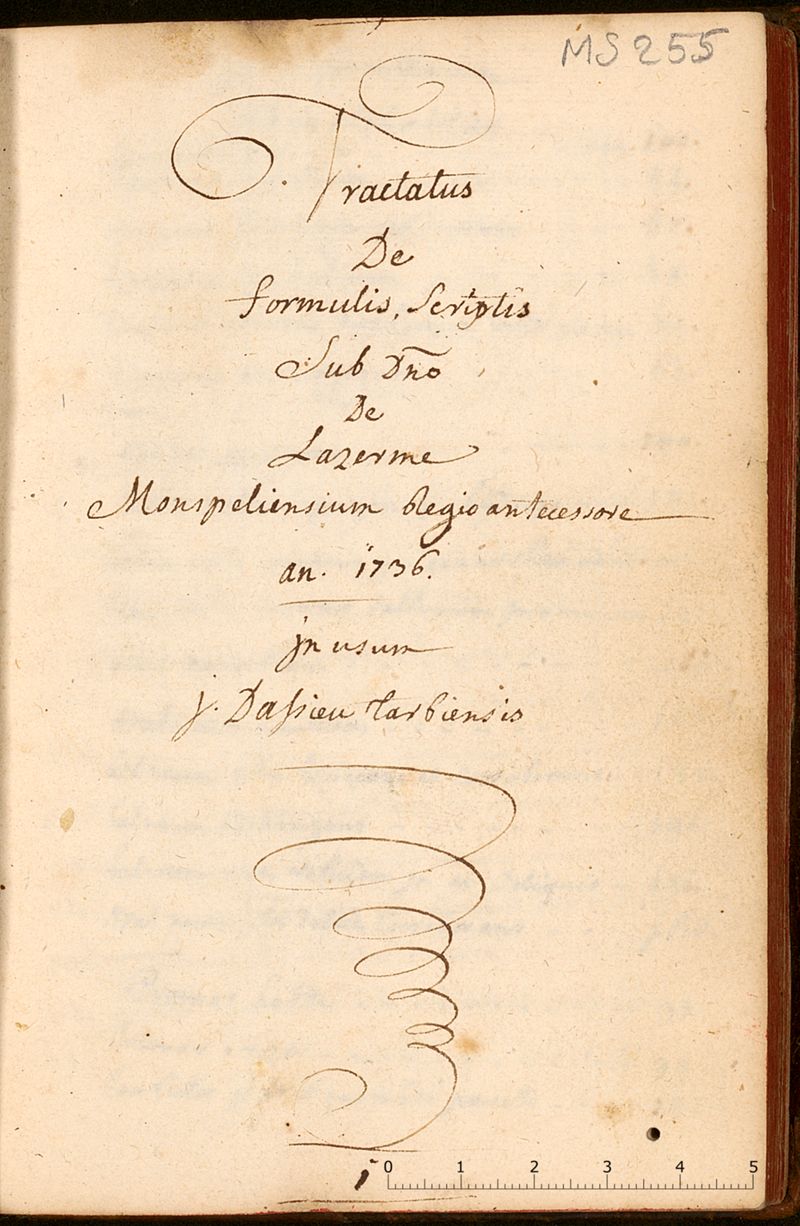 MS 255
Tractatus
De
formulis, Scriptis
Sub Dn̄o
De
Lazerme
Monspeliensium Regio antecessore
an. 1736.
jn usum
j. Daſsieu tarbiensis
1
0 1 2 3 4 5